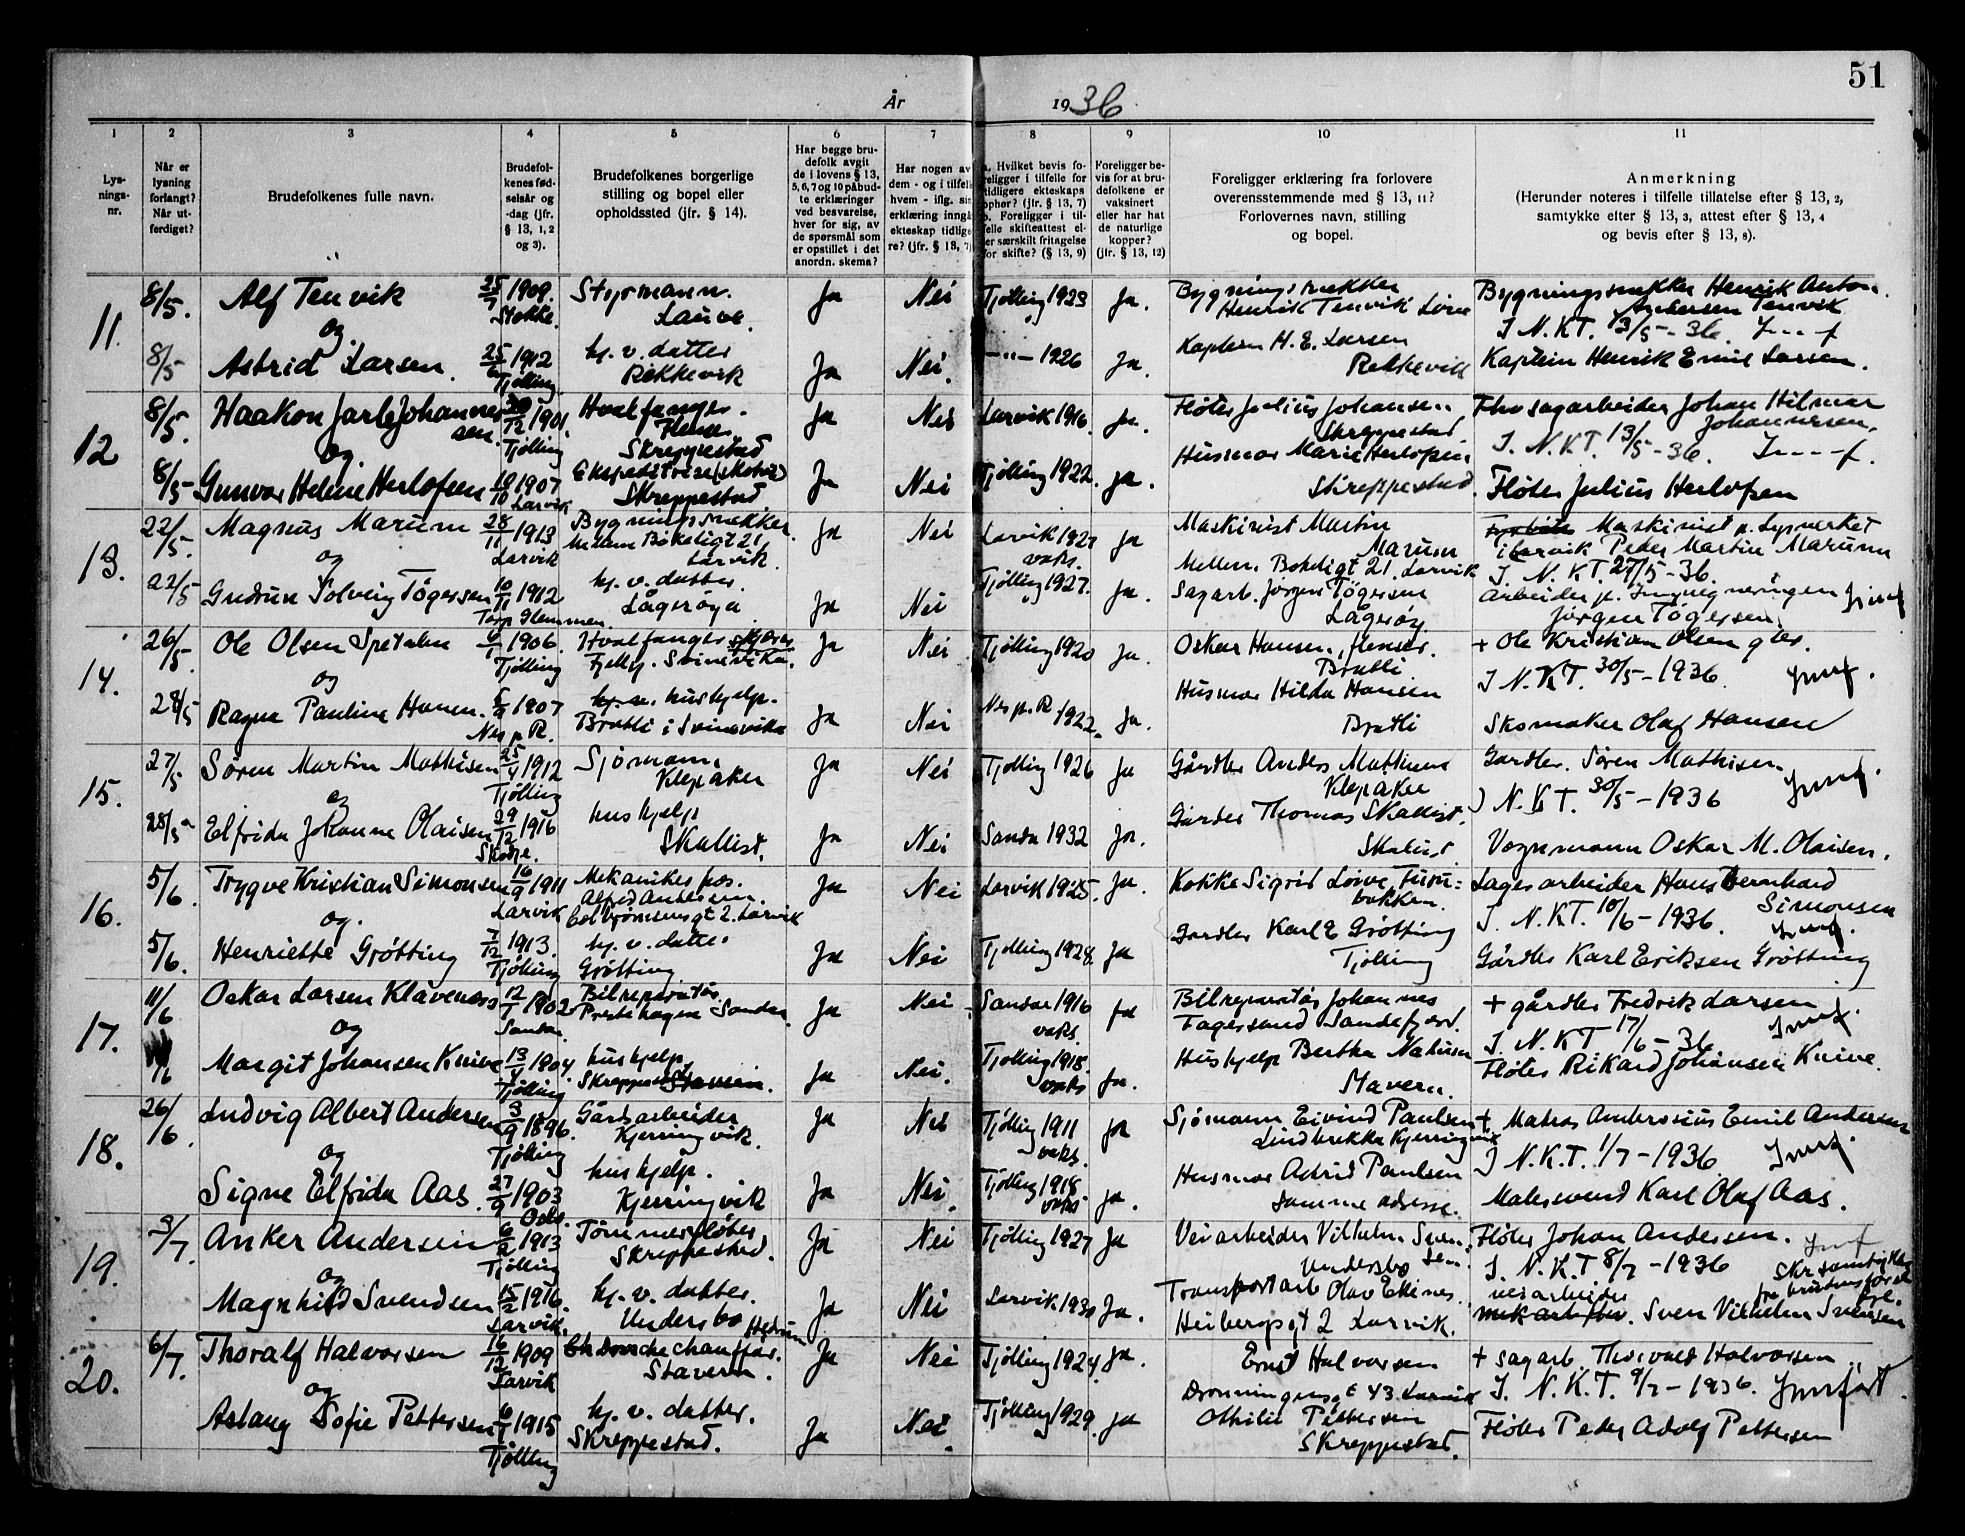 51
År 1936.
1 2 3 4 5 6 7 8 9 10 11
Lysnings-nr.
Når er lysning forlangt? Når utferdiget?
Brudefolkenes fulle navn.
Brudefolkenes fødselsår og -dag (jfr. § 13, 1, 2 og 3).
Brudefolkenes borgerlige stilling og bopel eller opholdssted (jfr. § 14).
Har begge brudefolk avgit de i lovens § 13, 5, 6, 7 og 10 påbudte erklæringer ved besvarelse, hver for sig, av de spørsmål som er opstillet i det anordn. skema?
Har nogen av dem - og i tilfelle hvem - iflg. sin erklæring inngått ekteskap tidligere? (jfr. § 13, 7)
a. Hvilket bevis foreligger i tilfelle for tidligere ekteskaps ophør? (jfr. § 13, 7)
b. Foreligger i tilfelle skifteattest eller særskilt fritagelse for skifte? (§ 13, 9)
Foreligger bevis for at brudefolkene er vaksinert eller har hat de naturlige kopper? (jfr. § 13, 12)
Foreligger erklæring fra forlovere overensstemmende med § 13, 11? Forlovernes navn, stilling og bopel.
Anmerkning
(Herunder noteres i tilfelle tillatelse efter § 13, 2, samtykke efter § 13, 3, attest efter § 13, 4 og bevis efter § 13, 8).
11. 8/5. Alf Tenvik 25/7 1909. Stokke. Styrmann. Lauve. Ja Nei Tjølling 1923 Ja. Bygningssnekker Henrik Tenvik Bygningssnekker Henrik Anton Andersen Tenvik
og I N.K.T. 13/5-36.
8/5 Astrid Larsen. 25/6 1912 Tjølling hj. v. datter Rekkevik Ja Nei. —"— 1926 Ja. Kaptein H. E. Larsen Rekkevik Kaptein Henrik Emil Larsen.
12 8/5. Haakon Jarle Johannessen. 30/12 1901. Tjølling Hvalfanger. Skreppestad Ja Nei Larvik 1916. Ja. Fløter Julius Johansen Skreppestad Johan Hilmar Johannessen.
og. I. N.K.T. 13/5-36.
8/5 Gunvor Helene Herlofsen 1907 Larvik Ekspeditrise Skreppestad Ja Nei Tjølling 1922. ja. Husmor Marie Herlofsen Skreppestad. Fløter Julius Herlofsen
13. 22/5. Magnus Marum 28/11 1913 Larvik Bygningssnekker. Mellem Bøkeligt 21, Larvik. Ja Nei Larvik 1927 vaks. Ja Maskinist Martin Marum Mellem Bøkeligt 21. Larvik Maskinist p. Lysverket i Larvik Peder Martin Marum
og I. N. K.T. 27/5-36.
22/5 Gudrun Solveig Tøgersen 10/11 1912 Torp Glemmen. hj. v. datter. Lågerøya Ja Nei Tjølling 1927. Ja. Sagarb. Jørgen Tøgersen Lågerøy Arbeider p. Impregneringen Jørgen Tøgersen.
14. 26/5. Ole Olsen Spetalen 1906. Tjølling Hvalfanger Svinevika. Ja Nei Tjølling 1920 Ja. Oskar Hansen, flenser. Bratli + Ole Kristian Olsen
og I N.K.T. 30/5-1936.
28/5 Ragna Pauline Hansen. 5/9 1907 Nes p R. hushjelp. Bratli i Svinevika Ja Nei Nes p. R. 1922. Ja. Husmor Hilda Hansen Bratli Skomaker Olaf Hansen
15. 27/5 Søren Martin Mathisen 25/4 1912 Tjølling Sjømann, Klepaker Ja Nei Tjølling 1926 Ja Gårdbr Anders Mathisen Klepaker Gardbr. Søren Mathisen.
og I N.K.T. 30/5-1936
28/5 Elfrida Johanne Olaisen 29/12 1916 hushjelp Skallist. Ja Nei Sandar 1932 Ja. Gårdbr Thomas Skallist. Skallist. Vognmann Oskar M. Olaisen.
16. 5/6. Trygve Kristian Simonsen 16/9 1911 Larvik Mekaniker hos. Alfr. Andersen. Colbjørnsensgt 2. Larvik Ja Nei Larvik 1925. Ja. Kokke Sigrid Lagerarbeider Hans Bernhard Simonsen
og. I. N.K.T. 10/6-1936.
5/6. Henriette Grøtting 7/12 1913. Tjølling hj. v. datter Grøtting Ja Nei Tjølling 1928. Ja Gardbr Karl E Grøtting Tjølling Gårdbr Karl Eriksen Grøtting
17. 11/6 Oskar Larsen Klavenæss 12/1 1902 Sandar. Bilreparatør Prestehagen Sandar. Ja Nei Sandar 1916 vaks. Ja Bilreparatør Johannes Fagersand Sandefjord. + gårdbr Fredrik Larsen.
og I. N.K.T 17/6-36
11/6 Margit Johansen Knive 13/4 1904 Tjølling hushjelp, Skreppestad. Ja Nei. Tjølling 1918. vaks Ja. Hushjelp Bertha Stavern. Fløter Rikard Johansen Knive.
18. 26/6. Ludvig Albert Andersen 3/9 1896. Tjølling Gårdsarbeider Kjerringvik. Ja Nei Tjølling 1911 vaks. Ja Sjømann Eivind Paulsen Lindbrekke Kjerringvik + Matros Ambrosius Emil Andersen
og I N.K.T. 1/7-1936.
Signe Elfrida Aas. 27/9 1903 Oslo. hushjelp. Kjerringvik Ja Nei. Tjølling 1918 vaks Ja. Husmor Astrid Paulsen samme adresse. Malersvend Karl Olaf Aas.
19. 3/7. Anker Andersen 6/2 1913 Tjølling Tømmerfløter Skreppestad. Ja Nei Tjølling 1927 Ja Veiarbeider Vilhelm Svensen. Undersbo Fløter Johan Andersen.
og I. N.K.T 8/7-1936 Skr samtykke fra brudens foreldre.
Magnhild Svendsen 15/2 1916. Larvik. hj. v. datter. Undersbo Hedrum Ja Nei Larvik 1930 Ja. Transportarb Olav Heibergsgt 2 Larvik. veiarbeider Sven Vilhelm Svensen
20. 6/7. Thoralf Halvorsen 16/12 1909 Larvik chauffør. Stavern. Ja Nei Tjølling 1924. Ja. Ernst Halvorsen Dronningensgt 43. Larvik + sagarb. Thorvald Halvorsen
og I. N.K.T. 9/7-1936.
Aslaug Sofie Pettersen 6/1 1915 Tjølling hj. v. datter. Skreppestad. Ja Nei. Tjølling 1929. Ja Othilie Pettersen Skreppestad. Fløter Peder Adolf Pettersen